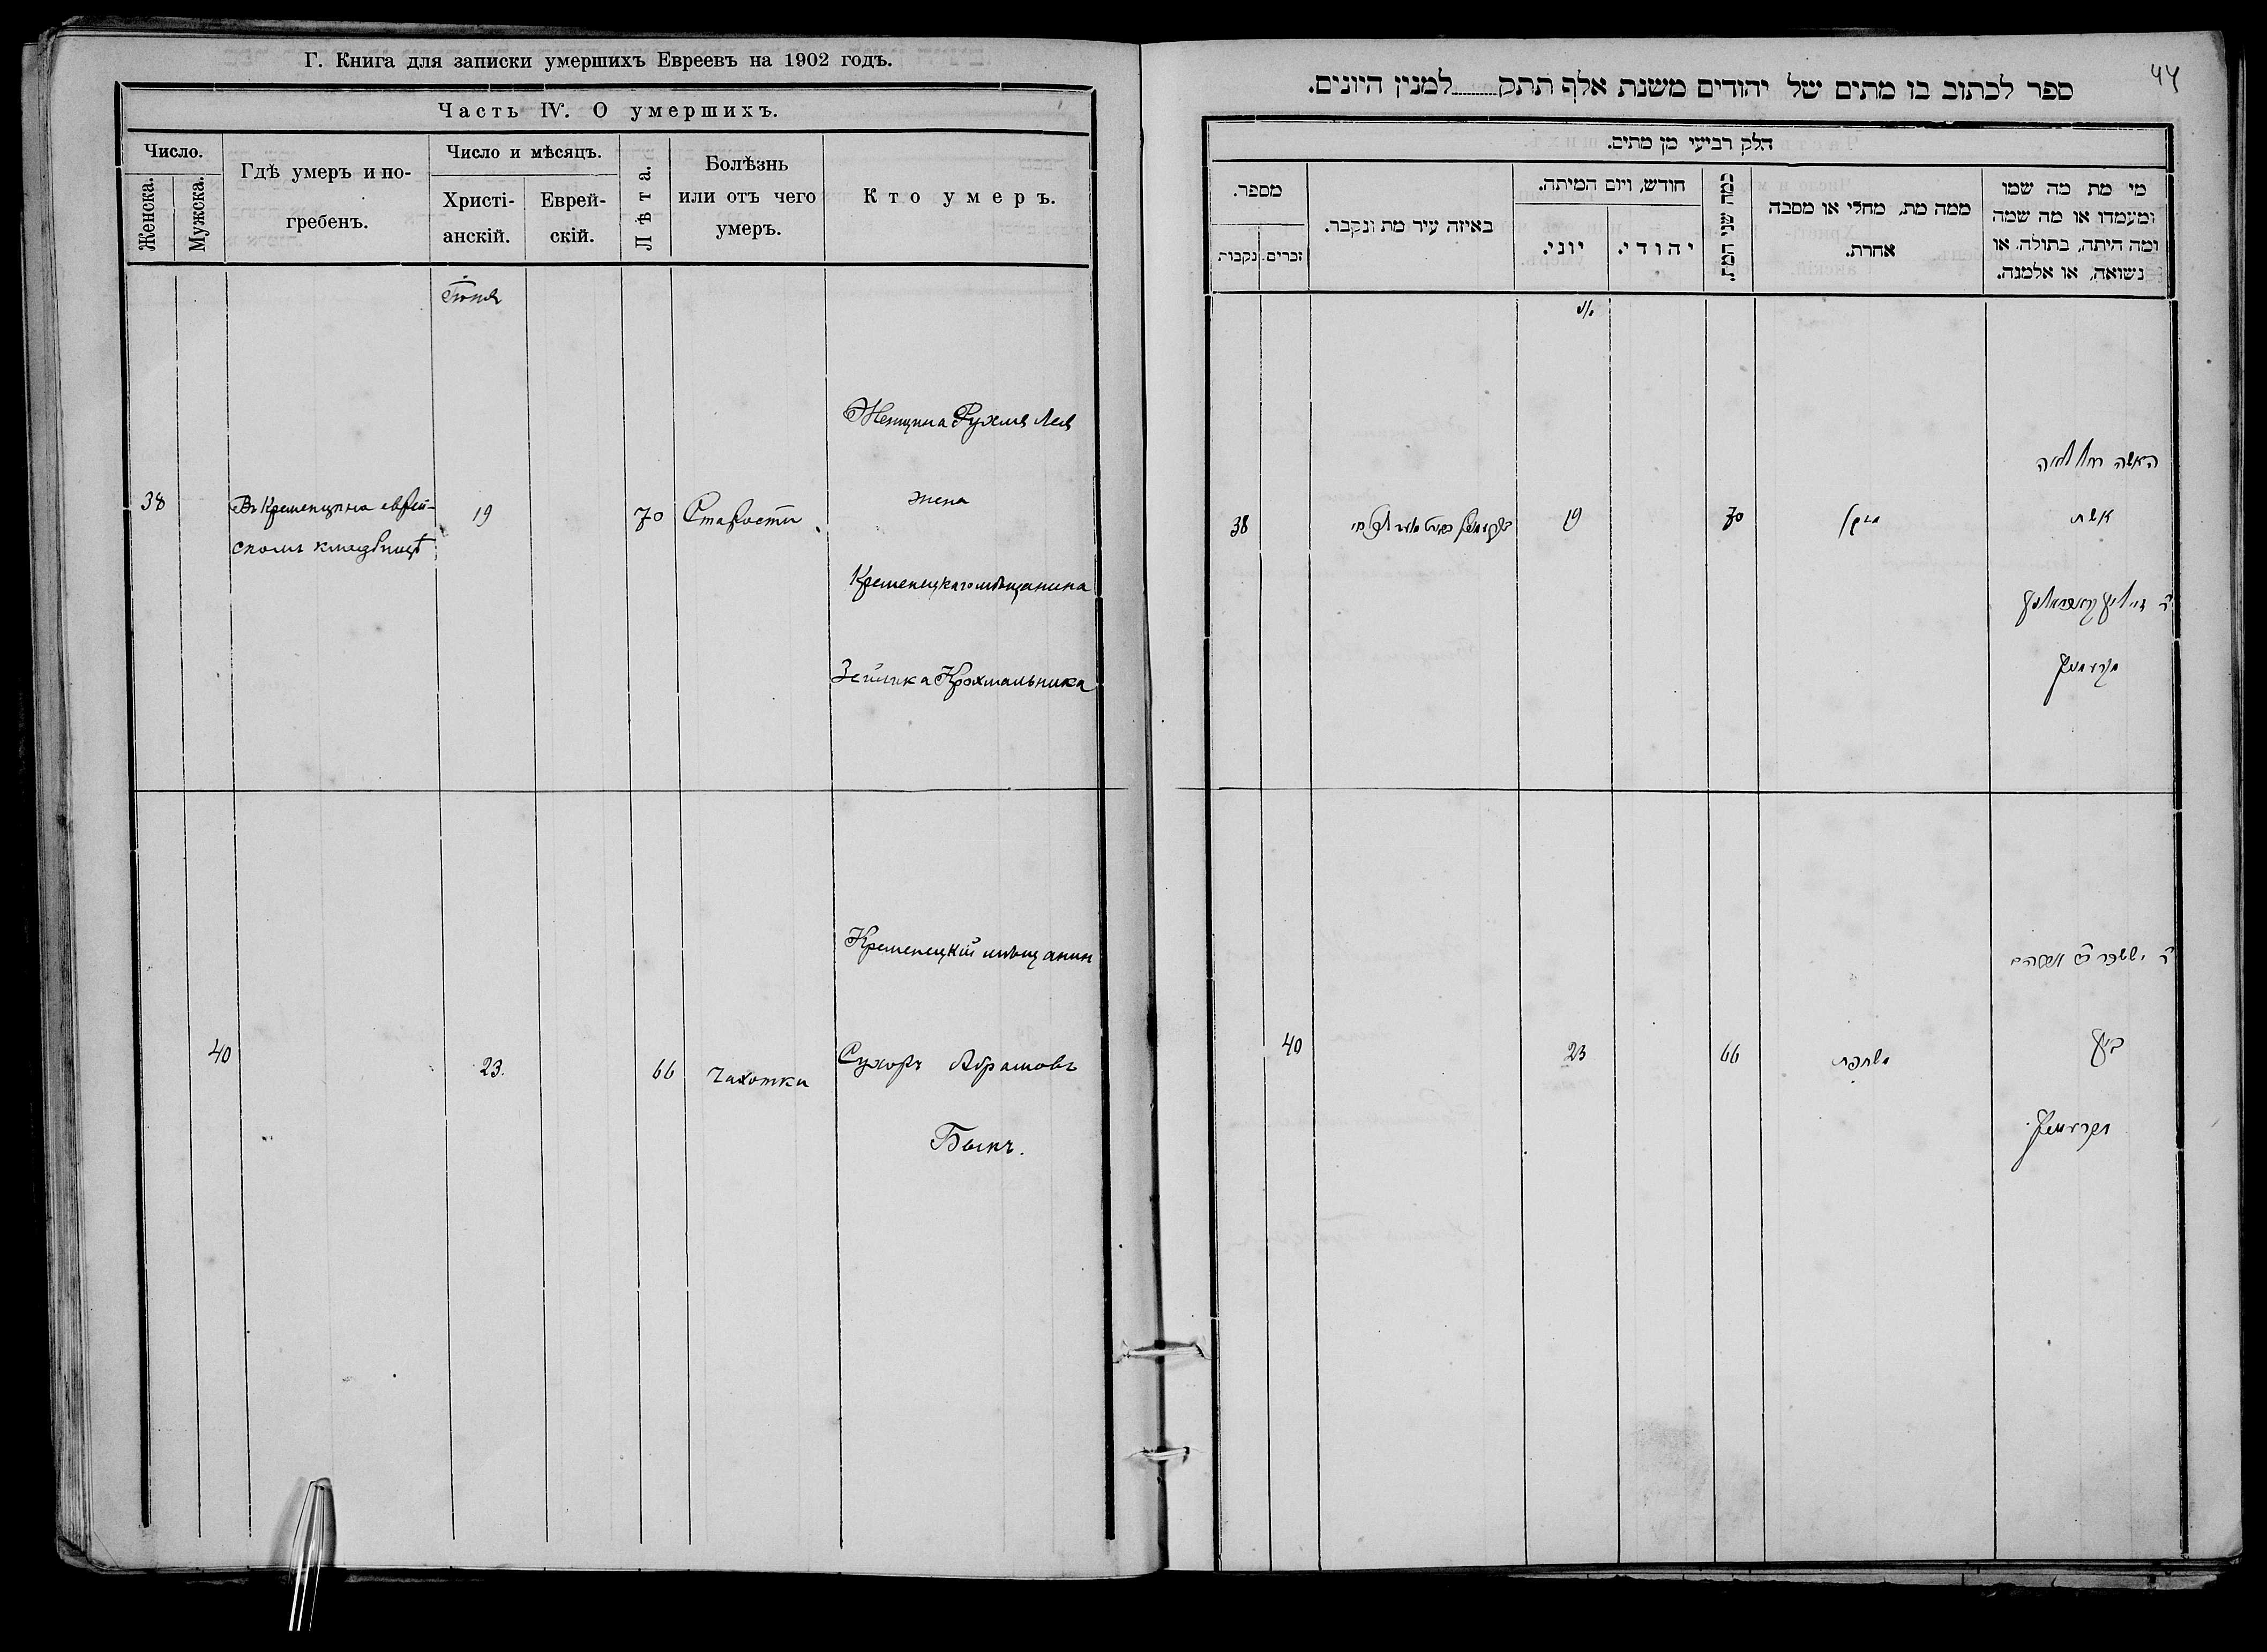 Г. Книга для записки умершихъ Евреевъ на 1902 годъ.
Часть IV. О умершихъ.
Число.
Женска.
Мужска.
Гдѣ умеръ и по-
гребенъ.
Число и мѣсяцъ.
Христі-
анскій.
Еврей-
скій.
Лѣта.
Болѣзнь
или отъ чего
умеръ.
Кто умеръ.
Іюня
38
Въ Кременцѣ на еврей-
скомъ кладбищѣ
19
70
Старости
Женщина Рухля Лея
жена
Кременецкаго мѣщанина
Зейлика Крохмальника
40
23.
66
Чахотка
Кременецкій мѣщанин
Сухоръ Абрамовъ
Быкъ.
44
ספר לכתוב בו מתים של יהודים משנת אלף תתק למנין היונים.
חלק רביעי מן מתים.
מספר.
נקבות
זכרים.
באיזה עיר מת ונקבר.
חודש, ויום המיתה.
יוני.
יהודי.
כמה שני המת.
ממה מת, מחלי או מסבה
אחרת.
מי מת מה שמו
ומעמדו או מה שמה
ומה היתה, בתולה, או
נשואה, או אלמנה.
38
19
70
האשה רחל לאה
אשת
40
23
66